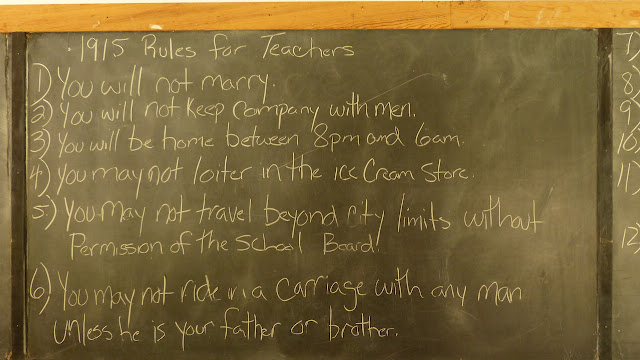 1915 Rules for Teachers
1) You will not marry.
2) You will not keep company with men.
3) You will be home between 8pm and 6am.
4) You may not loiter in the ice Cream Store.
5) You may not travel beyond city limits without
Permission of the School Board.
6) You may not ride in a carriage with any man
unless he is your father or brother.
7)
8)
9)
10)
11
12)